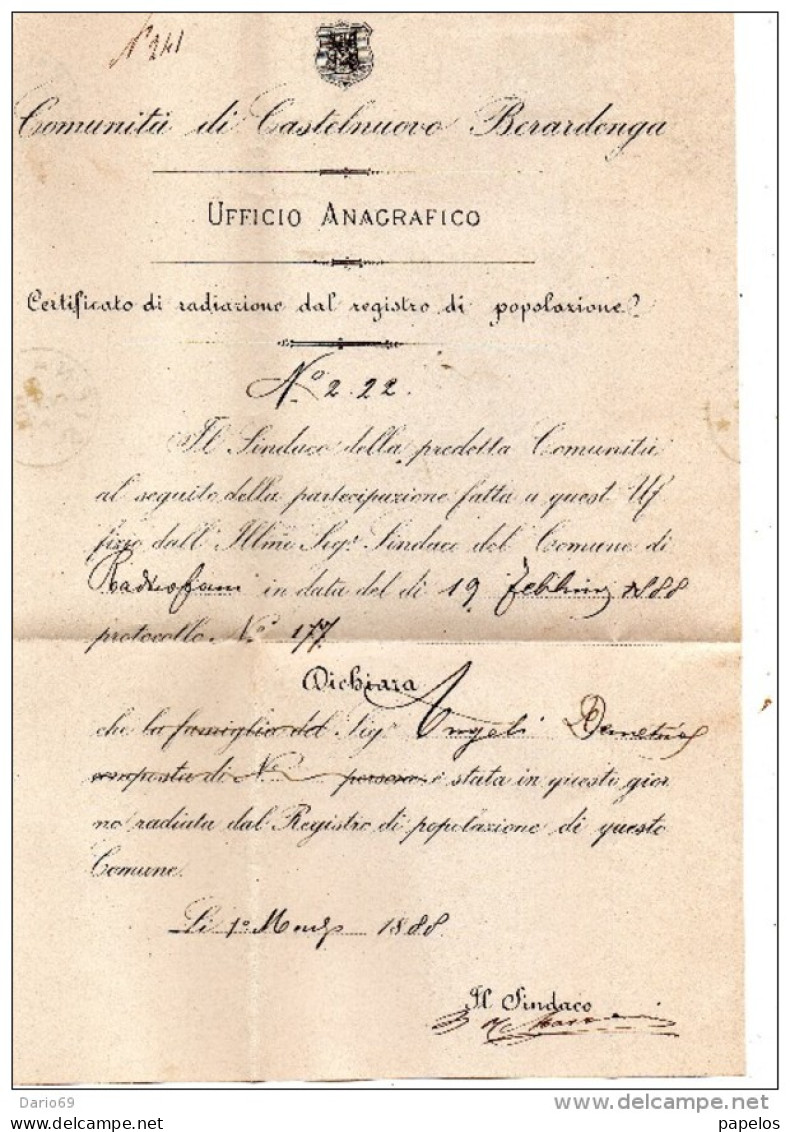 N° 241
Comunità di Castelnuovo Berardenga
UFFICIO ANAGRAFICO
Certificato di radiazione dal registro di popolazione
N.° 222.
Il Sindaco della predetta Comunità
al seguito della partecipazione fatta a quest' Uf
fizio dall' Illmo Sig.r Sindaco del Comune di
Radicofani in data del dì 19 Febbraio 1888
protocollo N.° 177
Dichiara
che la famiglia del Sig.r Angeli Demetrio
composta di N.° persone è stata in questo gior
no radiata dal Registro di popolazione di questo
Comune.
Li 1° Marzo 1888
Il Sindaco
Dario69
delcampe.net
papelos